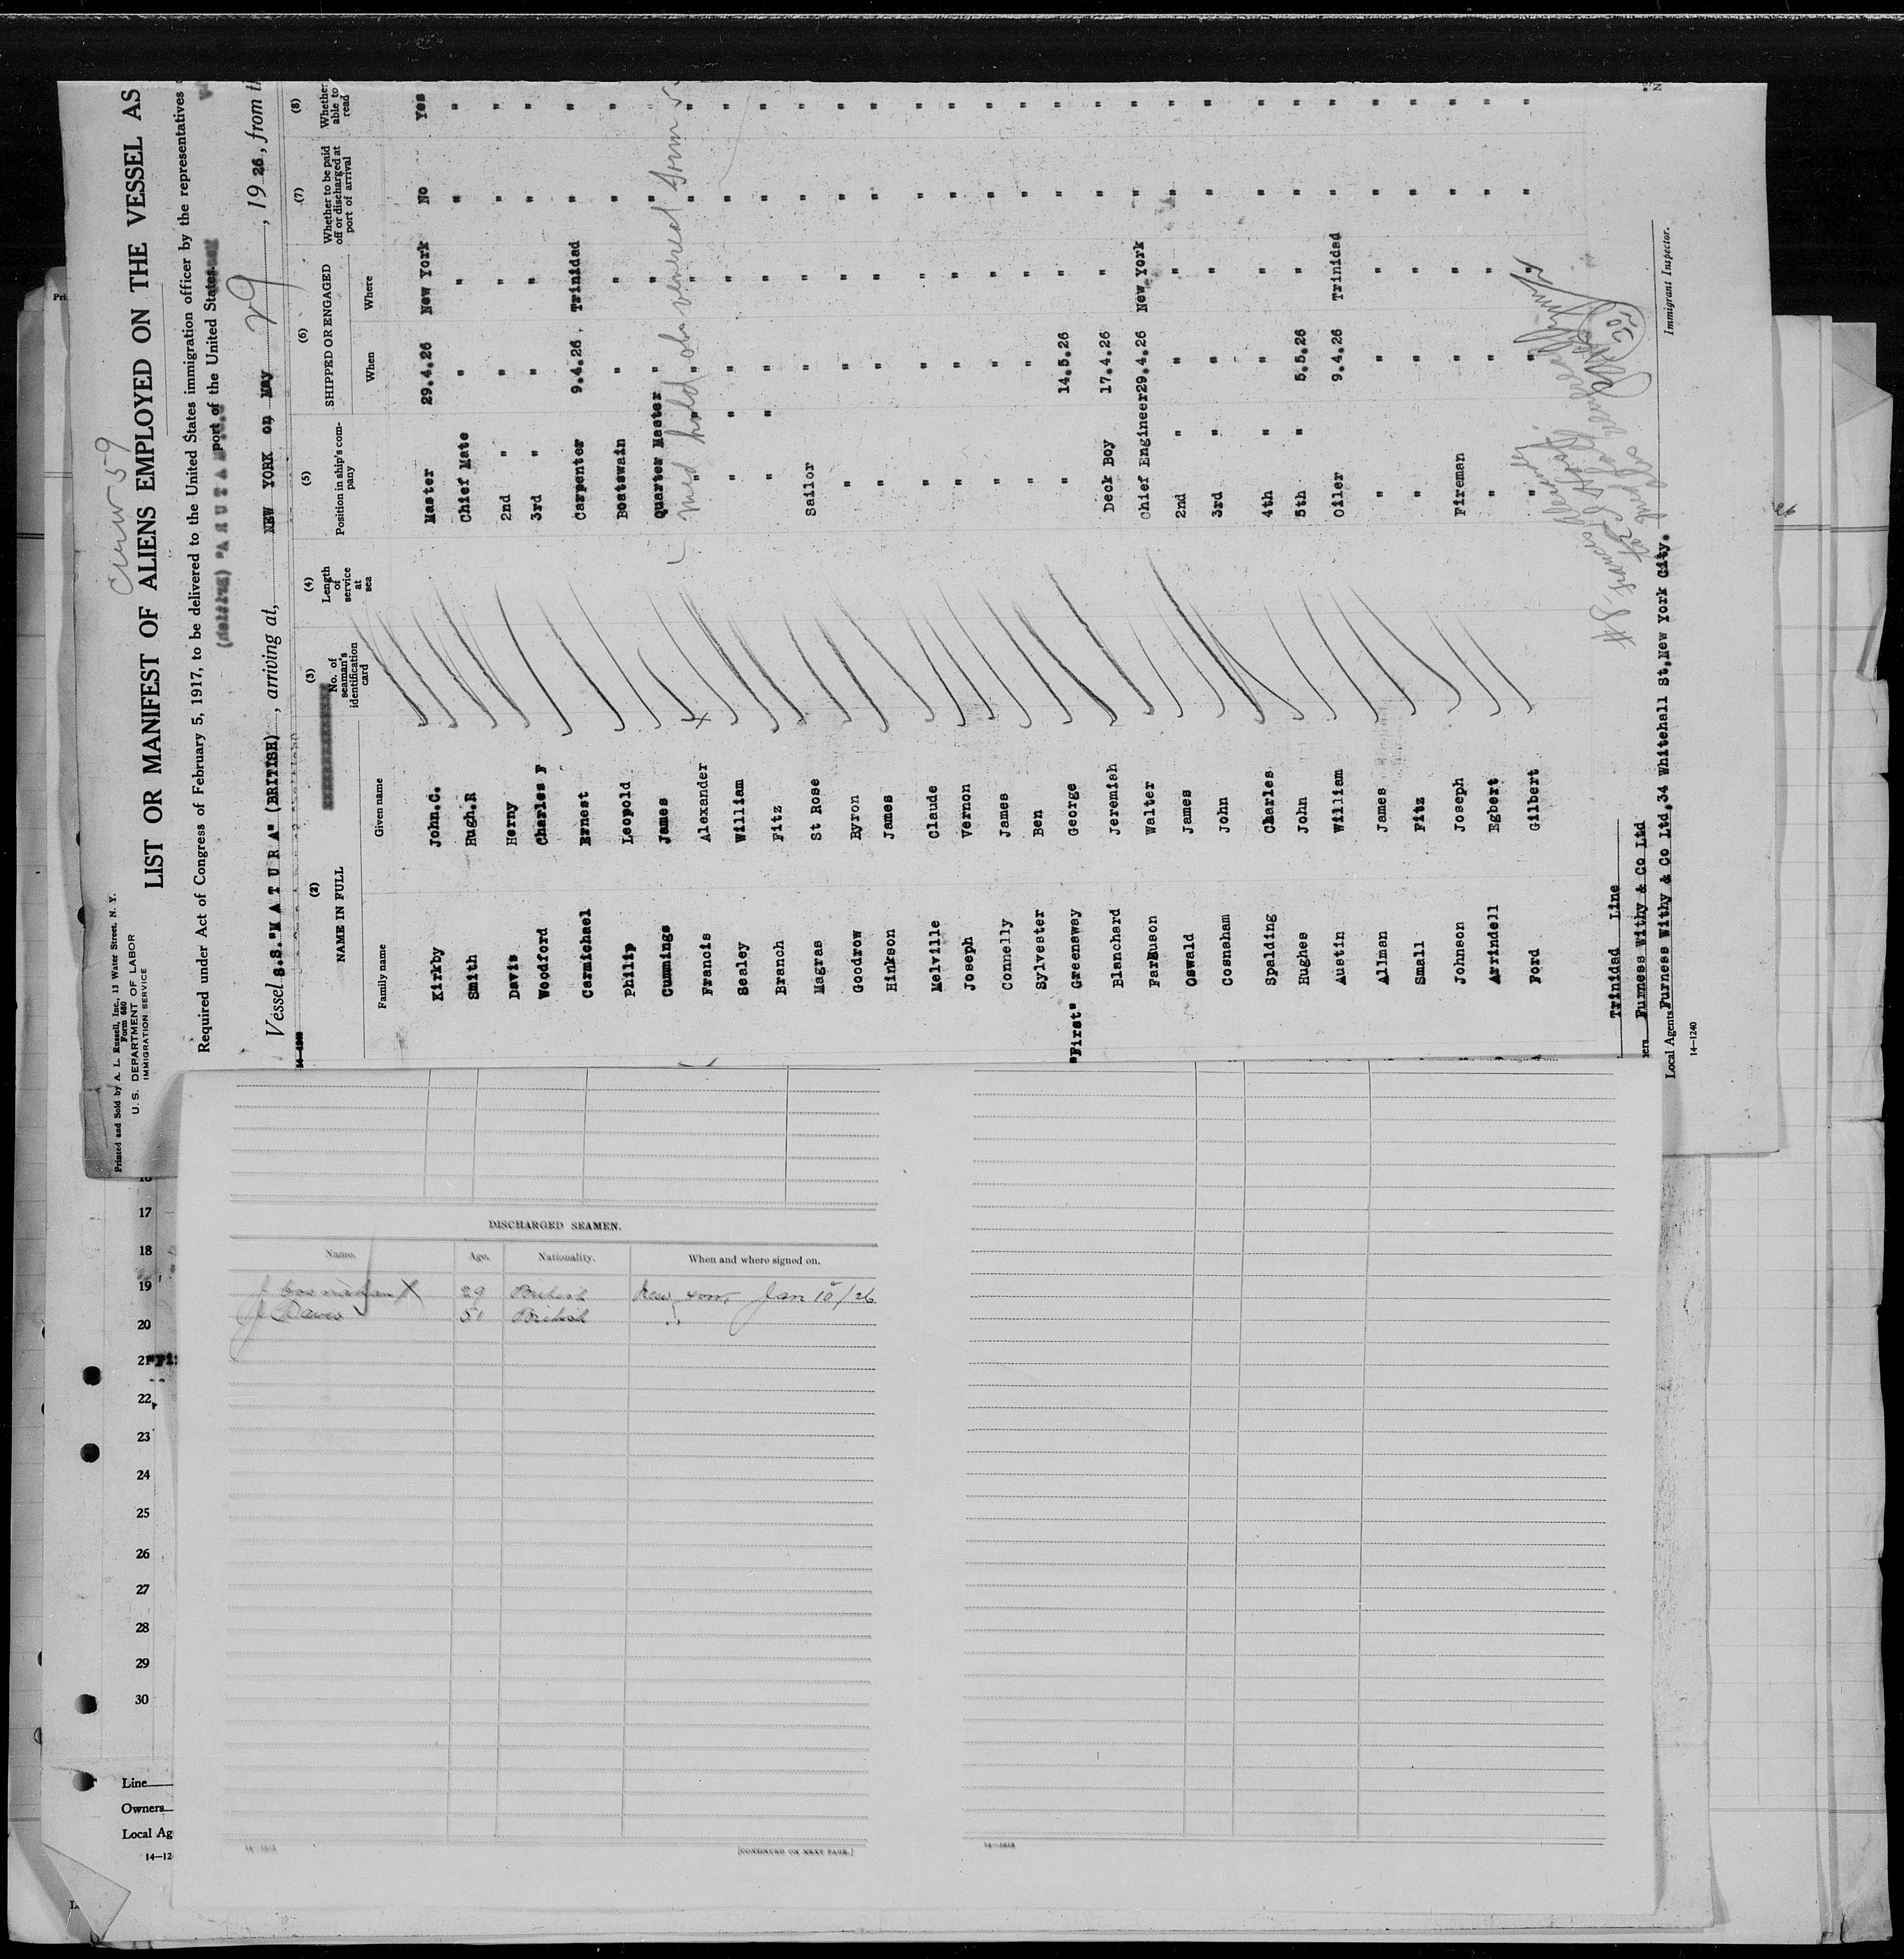 Crew 59
Printed and Sold by A. L. Russell, Inc., 13 Water Street, N. Y.
Form 680
U. S. DEPARTMENT OF LABOR
IMMIGRATION SERVICE
LIST OR MANIFEST OF ALIENS EMPLOYED ON THE VESSEL AS
Required under Act of Congress of February 5, 1917, to be delivered to the United States immigration officer by the representatives
port of the United States
Vessel S.S."M A T U R A" (BRITISH), arriving at, NEW YORK on May 29, 1926, from th
(2) (3) (4) (5) (6) (7) (8)
NAME IN FULL No. of seaman's identification card Length of service at sea Position in ship's company SHIPPED OR ENGAGED Whether to be paid off or discharged at port of arrival Whether able to read
Family name Given name When Where
Kirkby John.C. Master 29.4.26 New York No Yes
Smith Hugh.R Chief Mate " " " "
Davis Herny 2nd " " " " "
Woodford Charles F 3rd " " " " "
Carmichael Ernest Carpenter 9.4.26. Trinidad " "
Philip Leopold Boatswain " " " "
Cummings James Quarter Master " " " "
Francis Alexander " " " " " "
med hold
Sealey William " " " " " "
Branch Fitz " " " " " "
Magras St Rose Sailor " " " "
Goodrow Byron " " " " "
Hinkson James " " " " "
Melville Claude " " " " "
Joseph Vernon " " " " "
Connelly James " " " " "
Sylvester Ben " " " " "
"First" Greensway George " 14.5.26 " " "
Blanchard Jeremiah Deck Boy 17.4.26 " " "
Farguson Walter Chief Engineer 29.4.26 New York " "
Oswald James 2nd " " " " "
Cosnsham John 3rd " " " " "
Spalding Charles 4th " " " " "
Hughes John 5th " 5.5.26 " " "
Austin William Oiler 9.4.26 Trinidad " "
Allman James " " " " "
Small Fitz " " " " "
Johnson Joseph Fireman " " " "
Arrindell Egbert " " " " "
Ford Gilbert " " " " "
Trinidad Line
ers Furness Withy & Co Ltd
Local Agents Furness Withy & Co Ltd,34 Whitehall St,New York City.
Immigrant Inspector.
14—1240
17
18
19
20
21
22
23
24
25
26
27
28
29
30
Line
Owners
Local Ag
14—12
DISCHARGED SEAMEN.
Name. Age. Nationality. When and where signed on.
29 British New York Jan 10/26
J Davis 51 British "
14—1018
[CONTINUED ON NEXT PAGE.]
14—1018